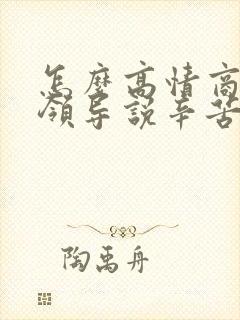 怎麼高情商
領导説辛苦
陶禹舟